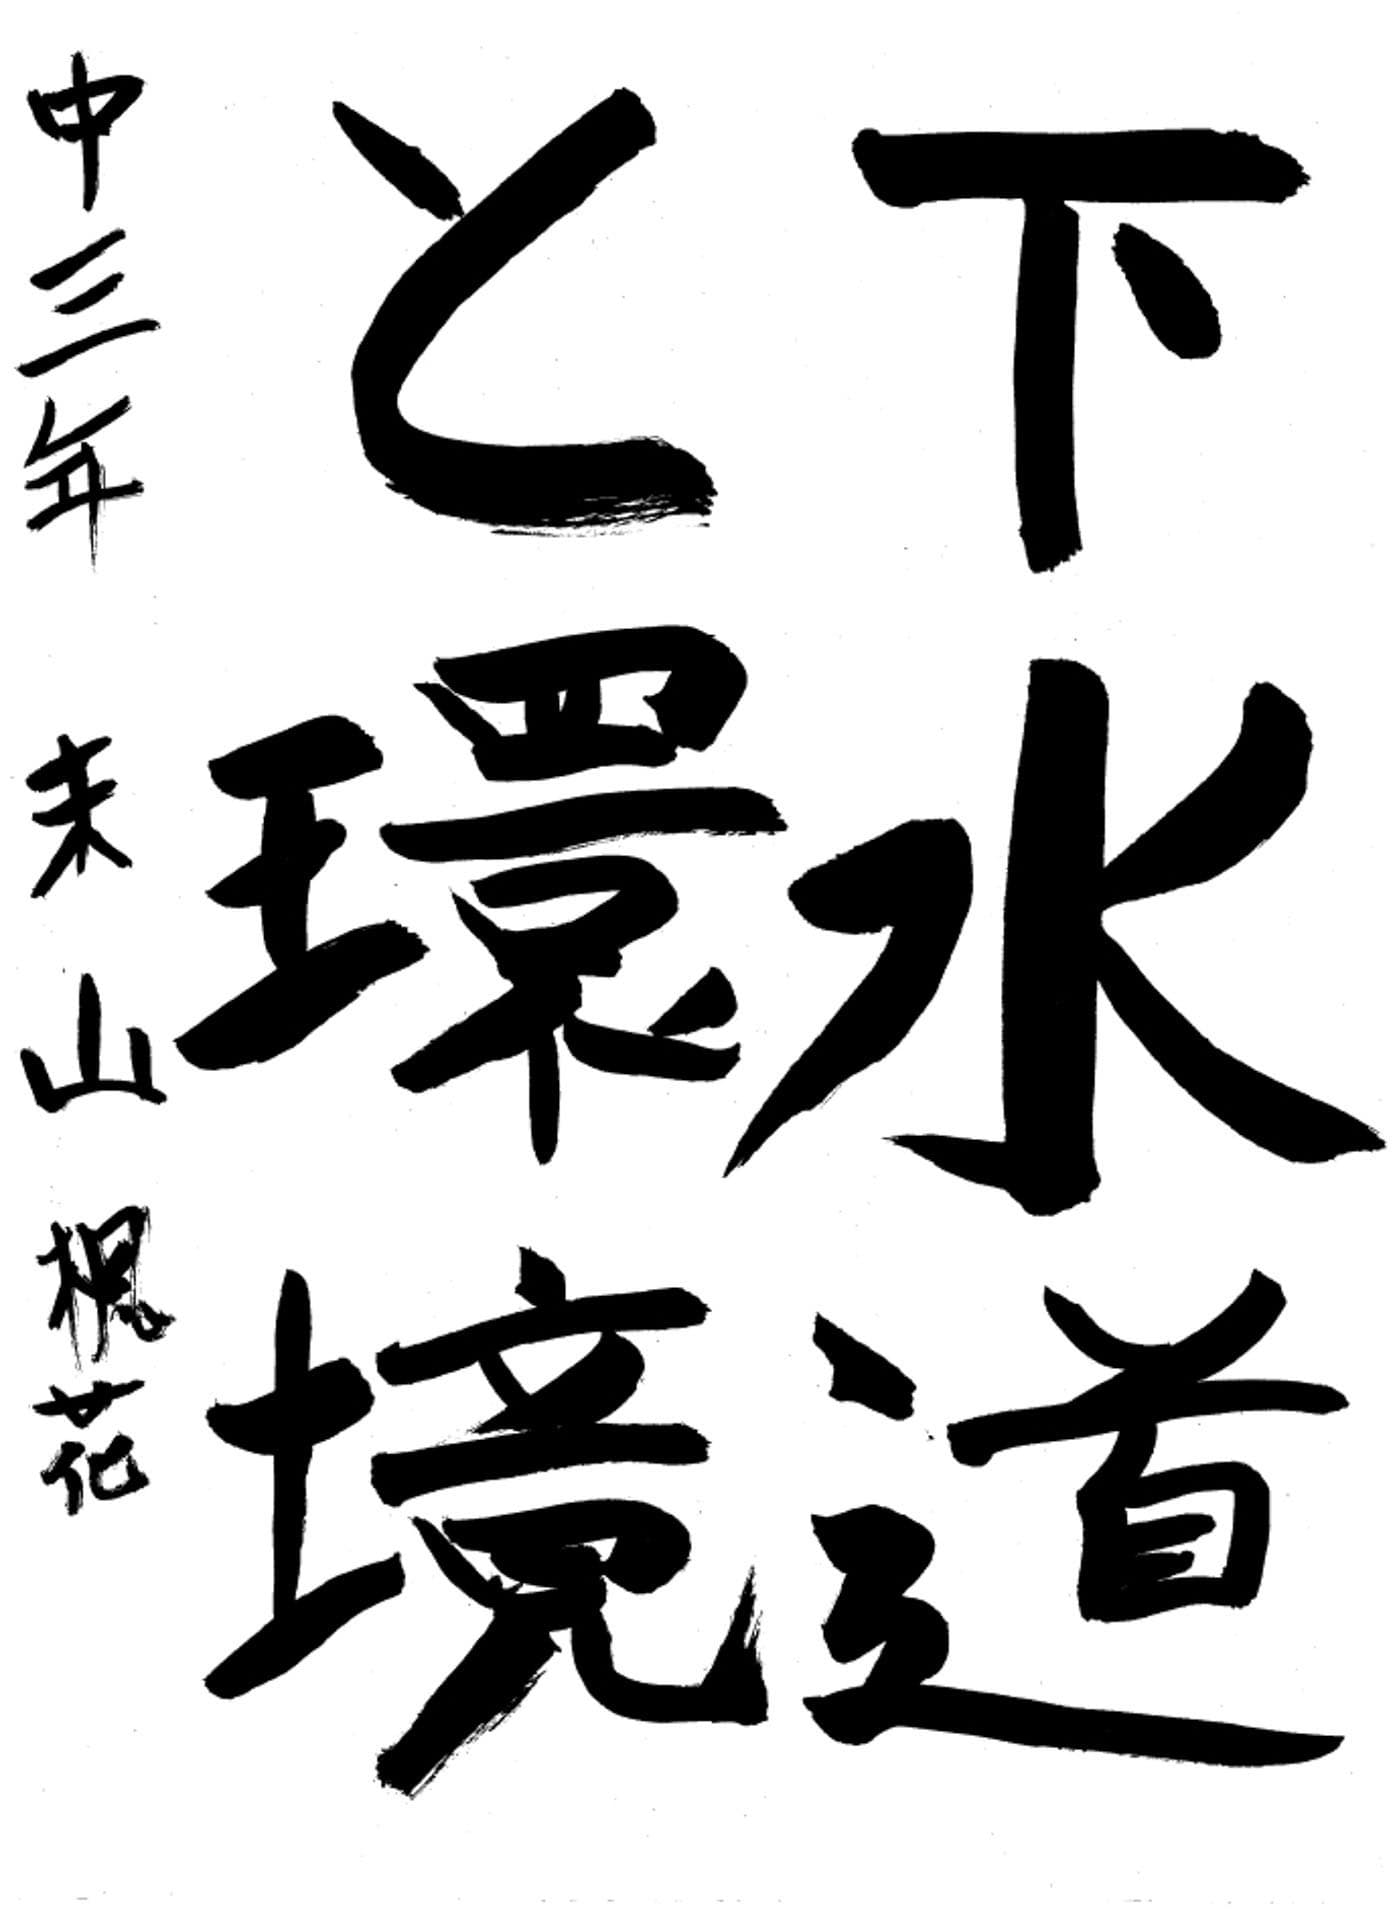 下水道
と環境
中三年 末山 楓花